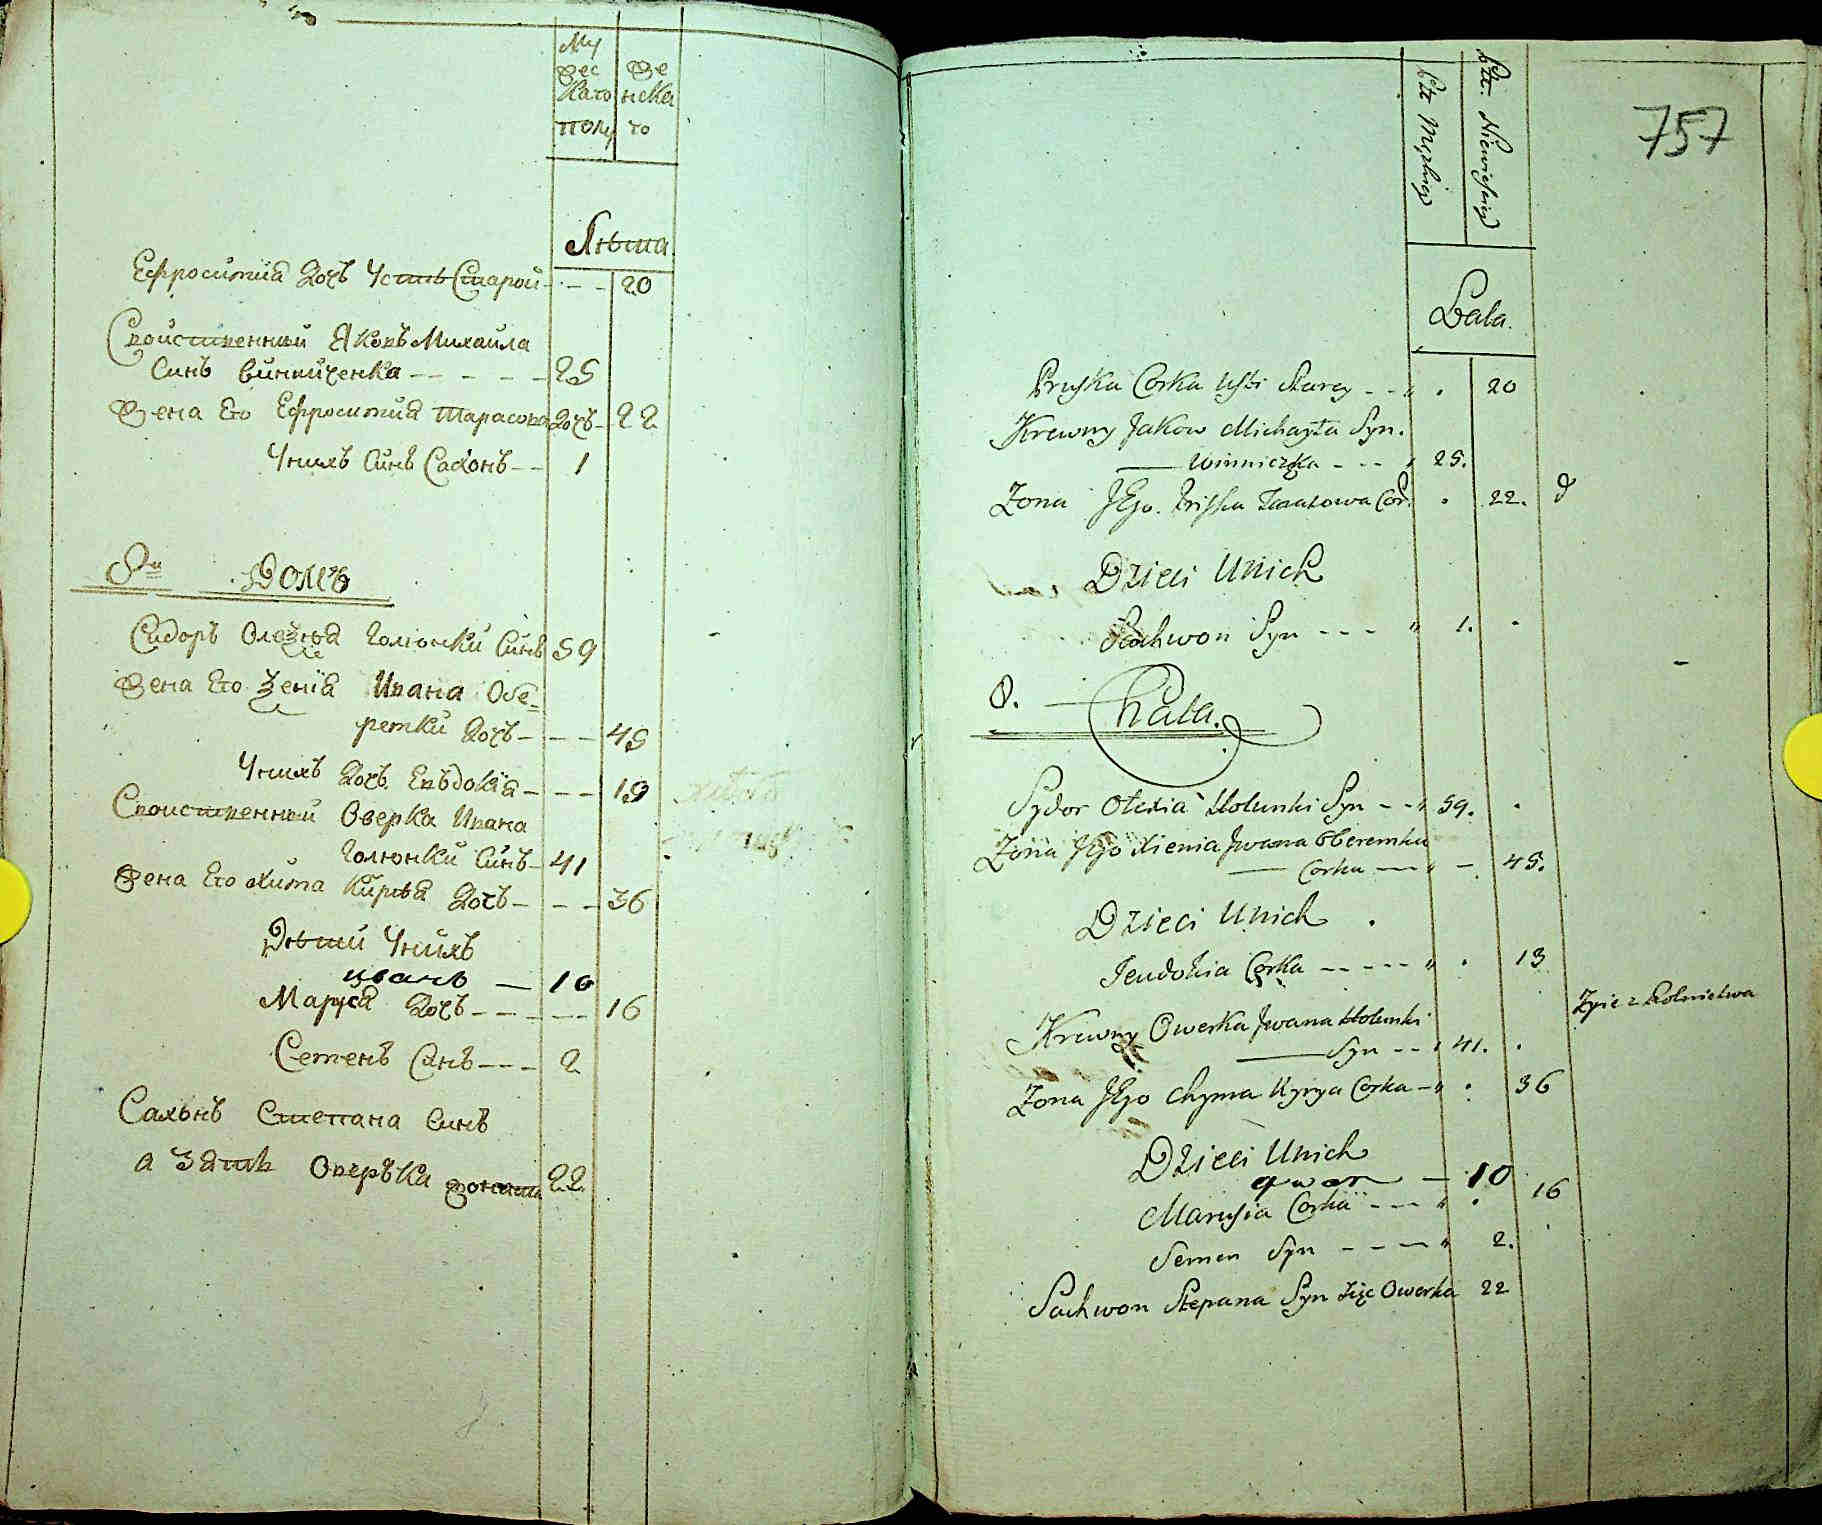 Му
жес
каго
полу
Же
нска
го
Лѣта
Ефросинїа Дочъ Устѣ Старой - - - 20
Своиственный Яковъ Михаила
Синъ Винниченка - - - - - 25
Жена Его Ефросинїа Тарасова Дочъ - 22
Уних Синъ Сахонъ - - 1
8й Домъ
Сидоръ Олеѯѣя Голюнки Синъ 59
Жена Его Ѯенїа Ивана Обе=
ремки Дочъ - - - - 45
Унихъ Дочъ Евъдокїа - - - - 13
Своиственный Оверка Ивана
Голюнки Синъ - 41
Жена Его Хима Кирѣя Дочъ - - - 36
Дѣти Унихъ
иванъ — 10
Маруся Дочъ - - - - - 16
Семенъ Синъ - - - 2
Сахонъ Степана Синъ
а Зять Оверъка 22
757
Płci Męskiey
Płci Niewieściey
Lata.
Pruska Corka Usti Starey - - " . 20
Krewny Jakow Michayła Syn.
Winniczka - - - 25.
Zona JEgo. Priska Tarasowa Cor. . 22.
Dzieci Unich
Sachwon Syn - - - " 1. .
8. — Chata.
Sydor Olexia Holunki Syn - - " 59. .
Zona JEgo Xienia Jwana Oberemku
— Corka — " - . 45.
Dzieci Unich .
Jeudokia Corka - - - - - " . 13
Krewny Owerka Jwana Holunki
— Syn - - " 41. .
Zyie z Rolnictwa
Zona JEgo Chyma Kyrya Corka - " . 36
Dzieci Unich
— 10
Marusia Corka - - - " . 16
Semen Syn - - - " 2.
Sachwon Stepana Syn Zięc Owerka 22